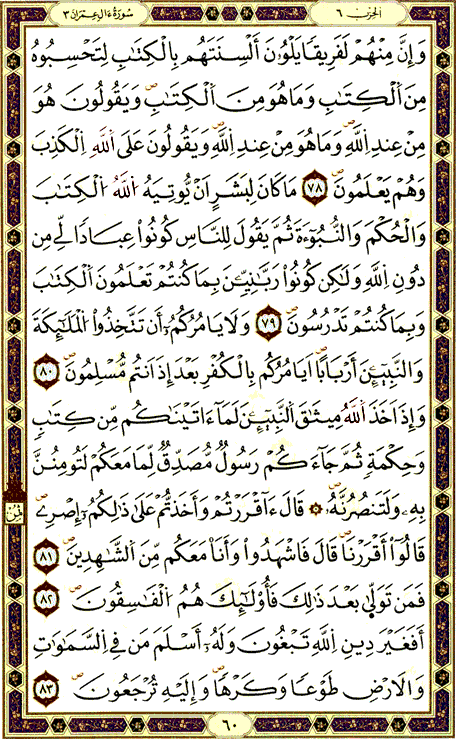 سُورَةُ ءَالِ عِمْرَانَ ٣ الحِزْبُ ٦
وَإِنَّ مِنْهُمْ لَفَرِيقًا يَلْوُۥنَ أَلْسِنَتَهُم بِالْكِتَٰبِ لِتَحْسِبُوهُ
مِنَ اَلْكِتَٰبِ وَمَا هُوَ مِنَ اَلْكِتَٰبِۖ وَيَقُولُونَ هُوَ
مِنْ عِندِ اِ۬للَّهِۖ وَمَا هُوَ مِنْ عِندِ اِ۬للَّهِۖ وَيَقُولُونَ عَلَى اَ۬للَّهِ اِ۬لْكَذِبَ
وَهُمْ يَعْلَمُونَۖ ٧٨ مَا كَانَ لِبَشَرٍ اَنْ يُّوتِيَهُ اُ۬للَّهُ اُ۬لْكِتَٰبَ
وَالْحُكْمَ وَالنُّبُوٓءَةَ ثُمَّ يَقُولَ لِلنَّاسِ كُونُواْ عِبَاداٗ لِّے مِن
دُونِ اِ۬للَّهِ وَلَٰكِن كُونُواْ رَبَّٰنِيِّـۧنَ بِمَا كُنتُمْ تَعْلَمُونَ اَ۬لْكِتَٰبَ
وَبِمَا كُنتُمْ تَدْرُسُونَۖ ٧٩ وَلَا يَامُرُكُمُۥٓ أَن تَتَّخِذُواْ اُ۬لْمَلَٰٓئِكَةَ
وَالنَّبِيٓـِٕۧنَ أَرْبَاباًۖ اَيَامُرُكُم بِالْكُفْرِ بَعْدَ إِذَ اَنتُم مُّسْلِمُونَۖ ٨٠
وَإِذَ اَخَذَ اَ۬للَّهُ مِيثَٰقَ اَ۬لنَّبِيٓـِٕۧنَ لَمَآ ءَاتَيْنَٰكُم مِّن كِتَٰبٖ
وَحِكْمَةٖ ثُمَّ جَآءَكُمْ رَسُولٞ مُّصَدِّقٞ لِّمَا مَعَكُمْ لَتُومِنُنَّ
بِهِۦ وَلَتَنصُرُنَّهُۥۖ ۞ قَالَ ءَآقْرَرْتُمْ وَأَخَذتُّمْ عَلَىٰ ذَٰلِكُمُۥٓ إِصْرِےۖ
قَالُوٓاْ أَقْرَرْنَاۖ قَالَ فَاشْهَدُواْ وَأَنَا مَعَكُم مِّنَ اَ۬لشَّٰهِدِينَۖ ٨١
فَمَن تَوَلّ۪ىٰ بَعْدَ ذَٰلِكَ فَأُوْلَٰٓئِكَ هُمُ اُ۬لْفَٰسِقُونَۖ ٨٢
أَفَغَيْرَ دِينِ اِ۬للَّهِ تَبْغُونَ وَلَهُۥٓ أَسْلَمَ مَن فِے اِ۬لسَّمَٰوَٰتِ
وَالَارْضِ طَوْعاٗ وَكَرْهاٗۖ وَإِلَيْهِ تُرْجَعُونَۖ ٨٣
٦٠